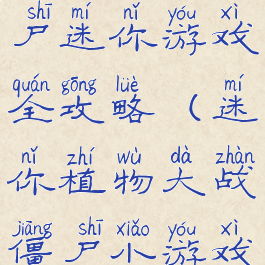 shī mí nǐ yóu xì
尸迷你游戏
quán gōng lüè mí
全攻略（迷
nǐ zhí wù dà zhàn
你植物大战
jiāng shī xiǎo yóu xì
僵尸小游戏